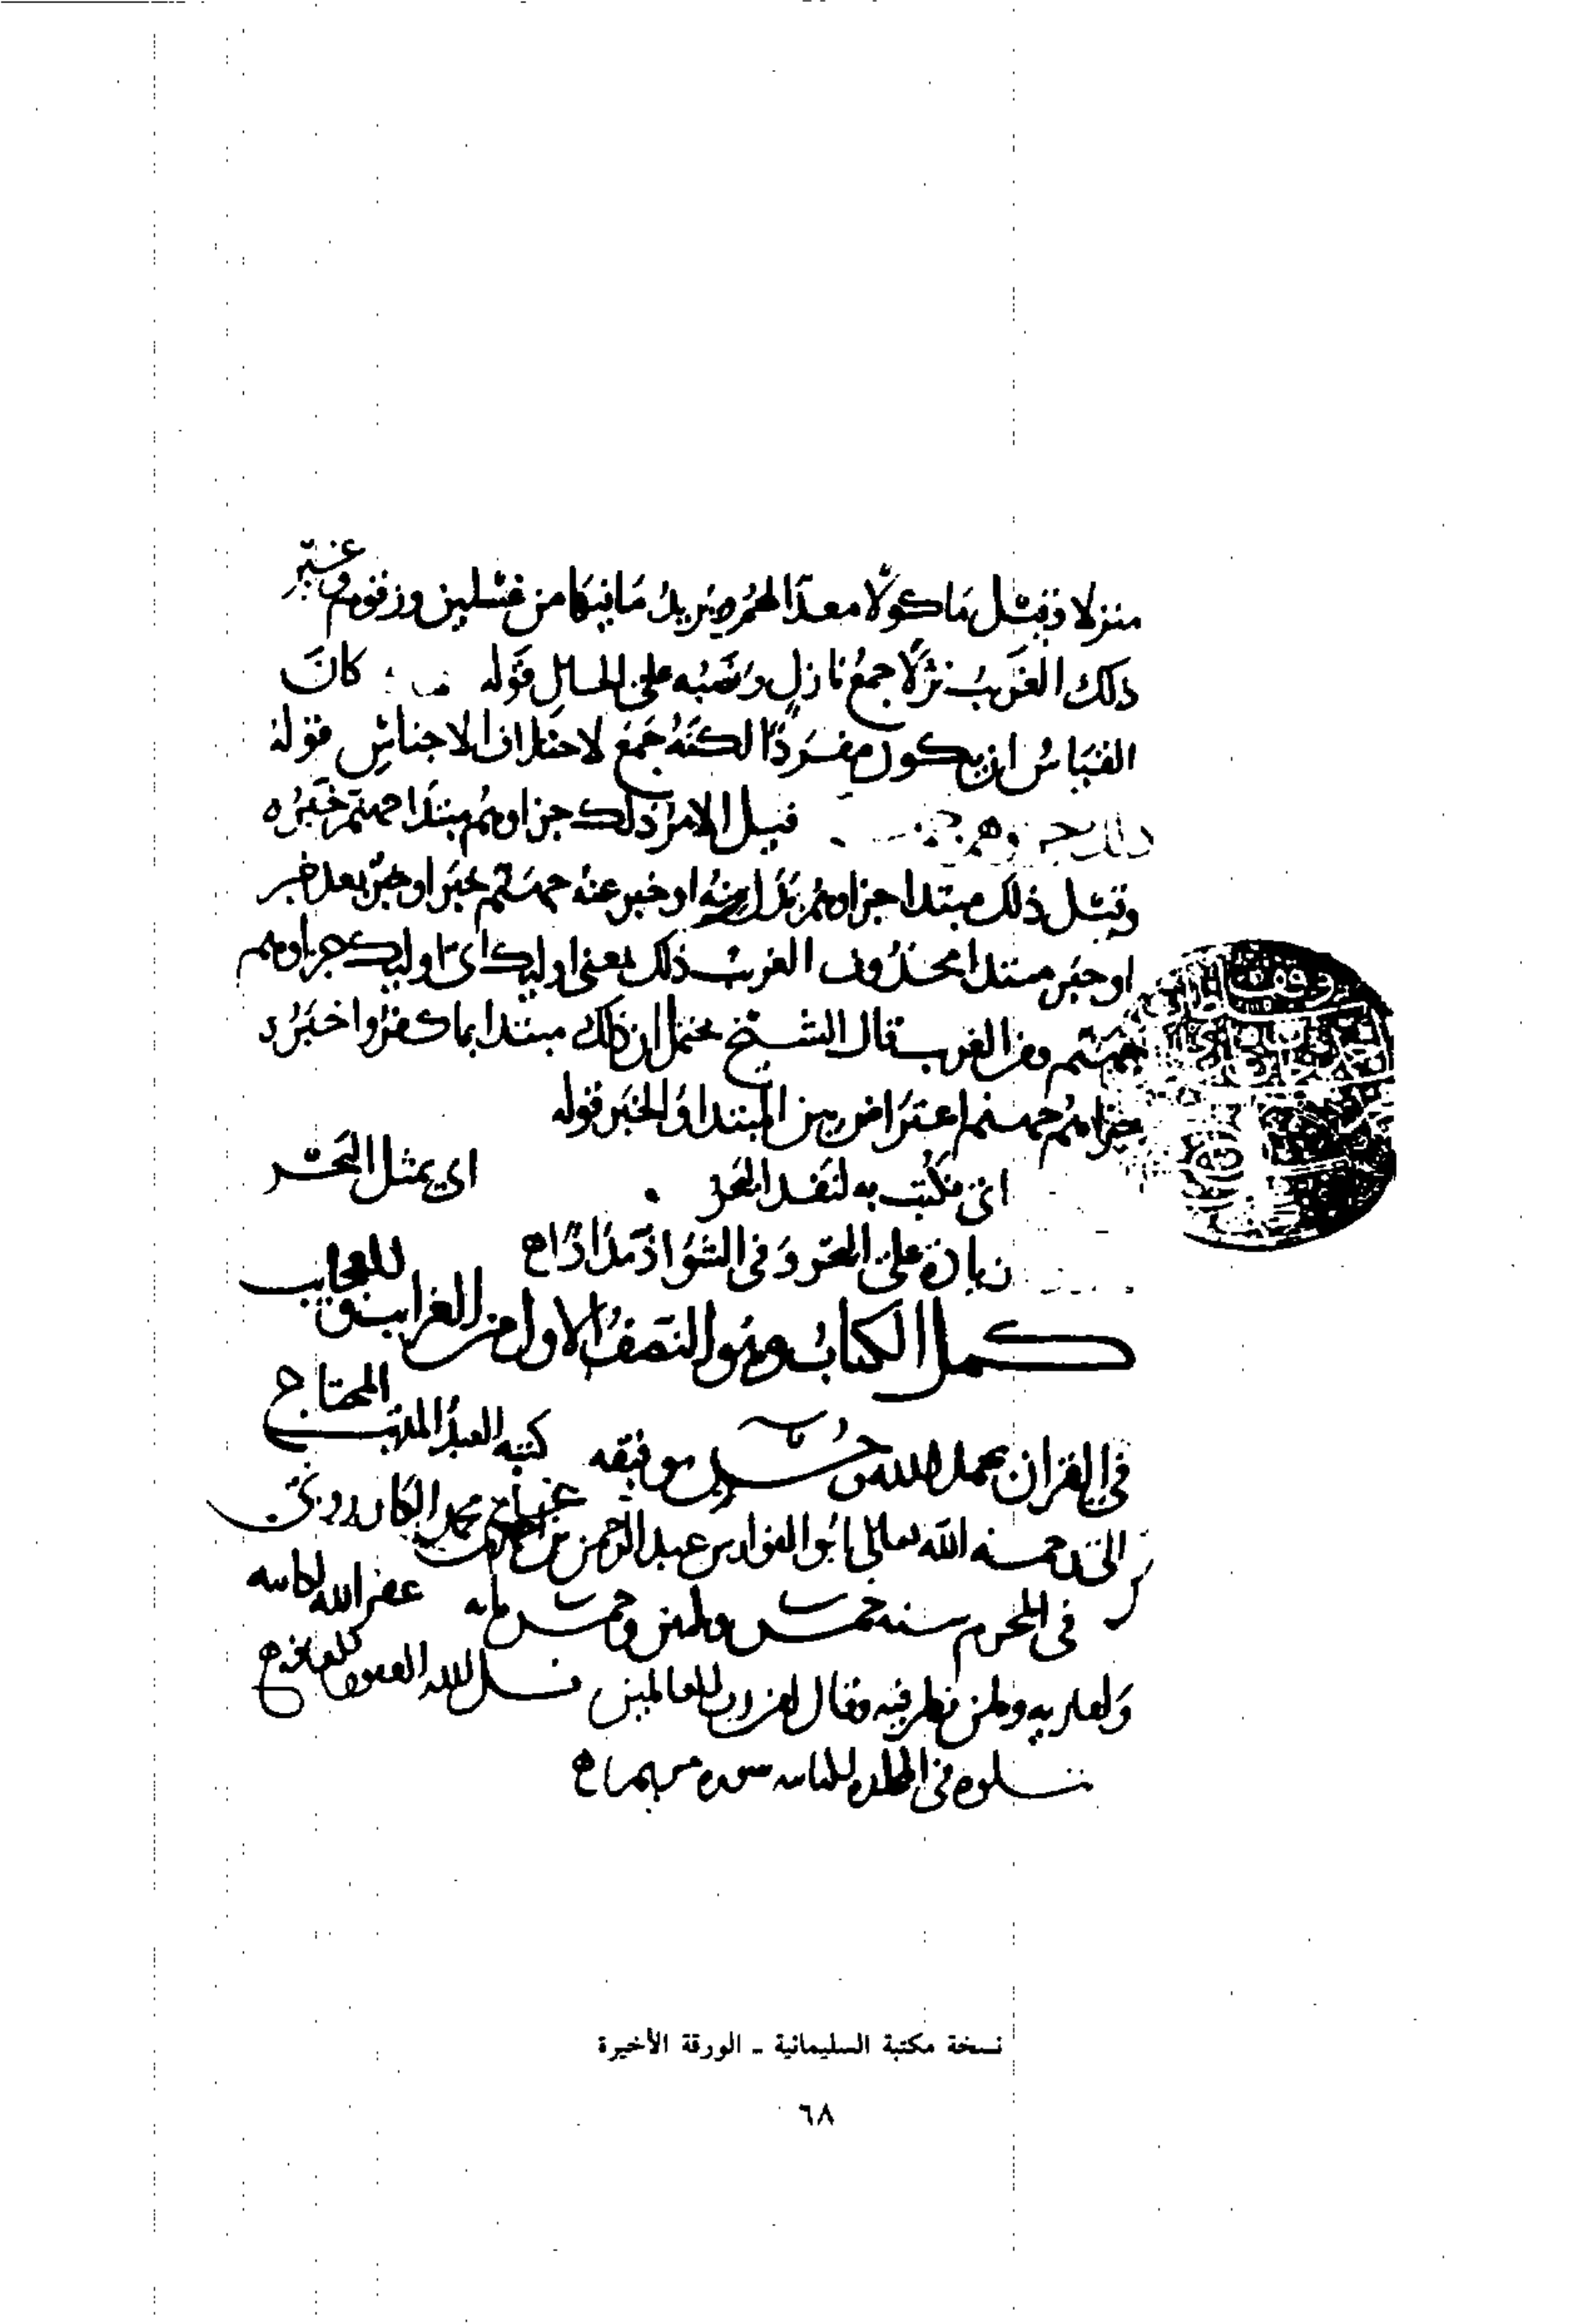 منزلا وقيل ماكولا معدا لهم يريد ما فيها من غسلين وزقوم وغير
ذلك الغريب نزلا جمع نازل ونصبه على الحال قوله كان
القياس ان يكون مفردا لكنه جمع لاختلاف الاجناس قوله
ذلك وهم قيل الامر ذلك جزاوهم مبتدا جهنم خبره
وقيل ذلك مبتدا جزاوهم بدل منه او خبر عنه جهنم خبر او خبر بعد خبر
او خبر مبتدا محذوف الغريب ذلك بمعنى اوليك اى اوليك جزاوهم
جهنم ومن الغريب قال الشيخ يحتمل ان ذلك مبتدا بما كفروا خبره
جزاوهم جهنم اعتراض بين المبتدا والخبر قوله
اى نكتب به لنفد البحر اى بمثل البحر
زيادة على البحر وفى الشواذ مدادا
كمل الكتاب وهو النصف الاول من الغرايب والعجايب
فى القران بحمد الله وحسن توفيقه كتبه العبد المذنب المحتاج
الى رحمة الله تعالى ابو الفوارس عبد الرحمن بن محمد الكازرونى
فى المحرم سنه خمس وثلثين وخمس مايه غفر الله لكاتبه
ولقاريه ولمن نظر فيه وقال امين رب العالمين
يتلوه فى المجلده الثانيه سوره مريم
نسخة مكتبة السليمانية - الورقة الأخيرة
٦٨